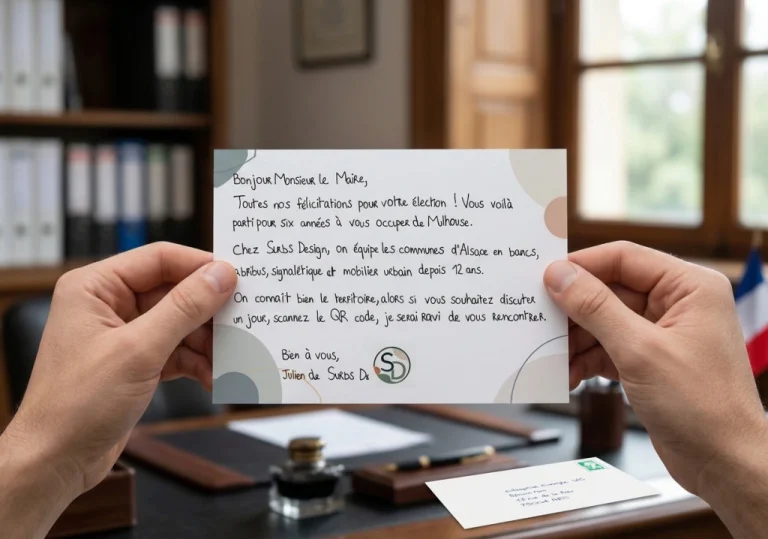 Bonjour Monsieur le Maire,
Toutes nos félicitations pour votre élection ! Vous voilà
parti pour six années à vous occuper de Mulhouse.
Chez Surbs Design, on équipe les communes d'Alsace en bancs,
abribus, signalétique et mobilier urbain depuis 12 ans.
On connaît bien le territoire, alors si vous souhaitez discuter
un jour, scannez le QR code, je serai ravi de vous rencontrer.
Bien à vous,
Julien de Surbs De
SD